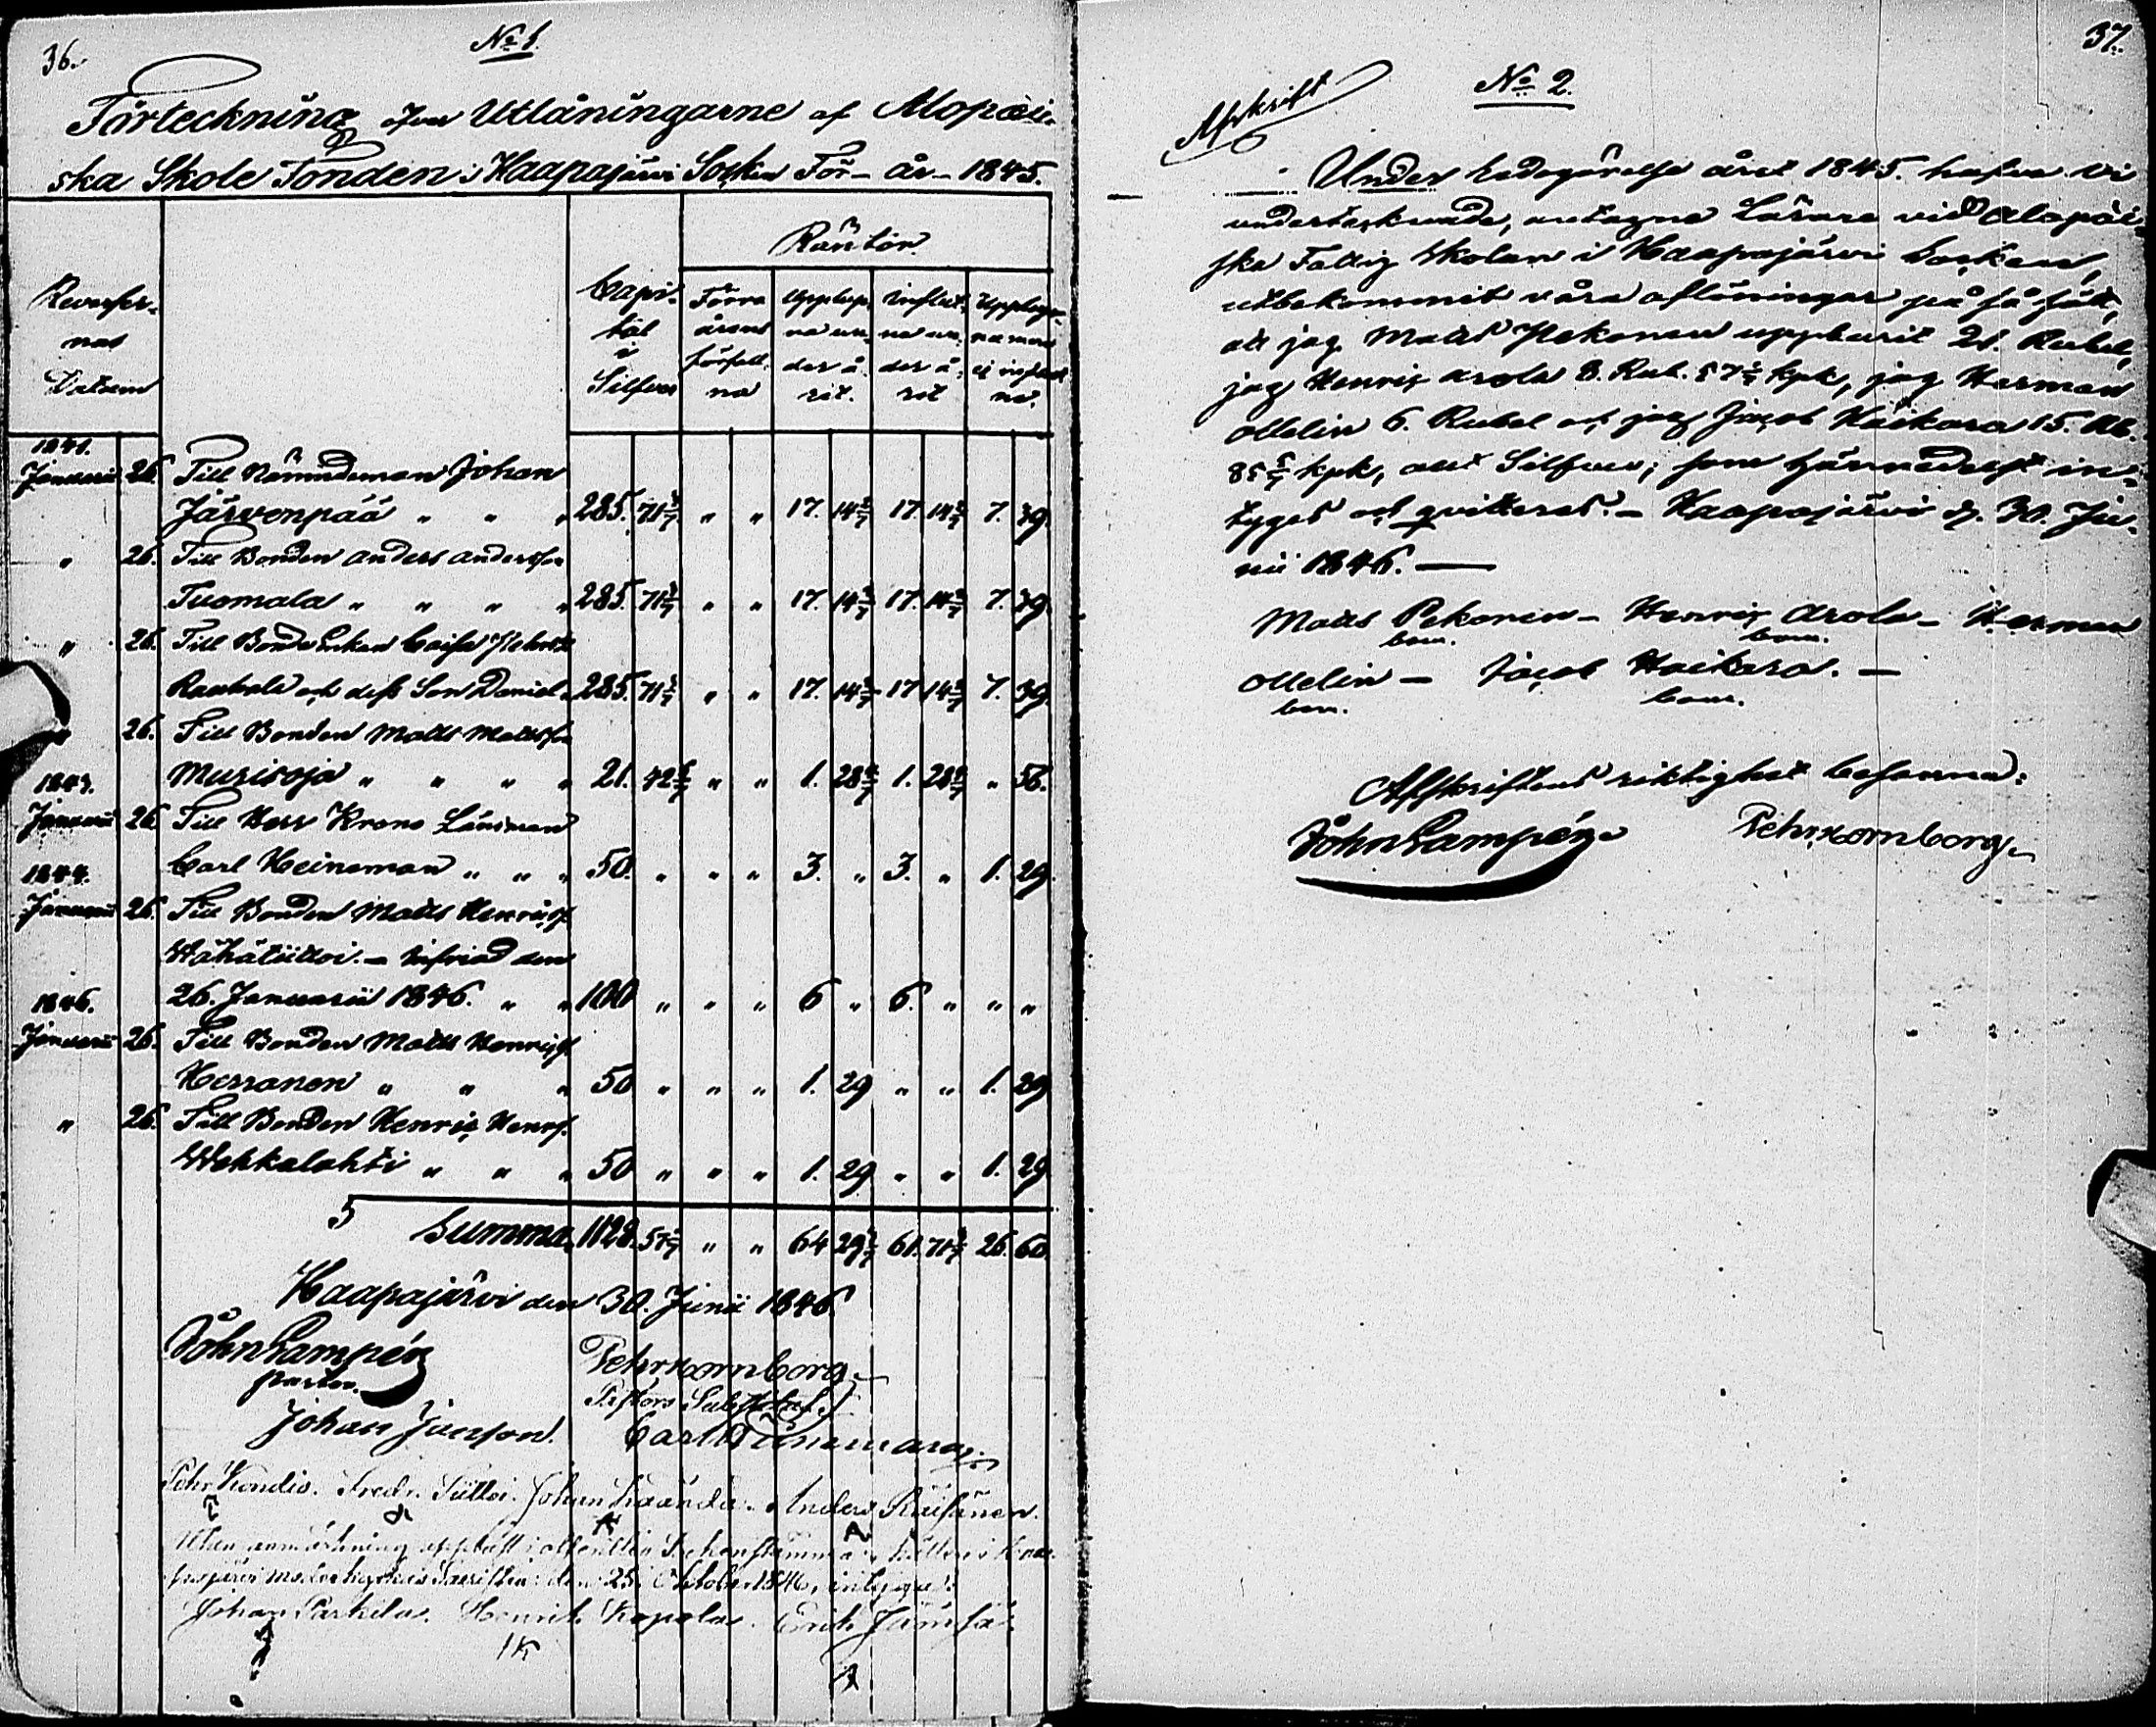 36.
No 1.
Förteckning öfver Utlåningarne af Alopæi-
ska Skole Fonden i Haapajärvi Socken För år 1845.
Reverser-
nas
Datum
Capi-
tal
i
Silfver
Räntor.
Förra
årens
förfall-
na
Upplup-
na un-
der å-
ret.
Influt-
na un-
der å-
ret
Upplup-
na men
ej influt
ne.
1841.
Januarii 26. Till Nämndeman Johan
Järvenpää " " " 285. 71 3/7 " " 17. 14 2/7 17. 14 2/7 7. 39.
" 26. Till Bonden Anders Andersson
Tuomala " " " " 285. 71 3/7 " " 17. 14 2/7 17. 14 2/7 7. 39.
" 26. Till Bonde Enkan Caisa
och dess Son Daniel " 285. 71 3/7 " " 17. 14 2/7 17. 14 2/7 7. 39.
" 26. Till Bonden Matts Mattsson
Murisoja " " " " 21. 42 6/7 " " 1. 28 4/7 1. 28 4/7 " 56.
1843.
Januarii 26. Till Herr Krono Länsman
Carl Heineman " " " 50. " " " 3. " 3. " 1. 29.
1844.
Januarii 26. Till Bonden Matts Henricss.
Wähätiittoi. – Infriad den
26. Januarii 1846. " " 100 " " " 6 " 6. " " "
1846.
Januarii 26. Till Bonden Matts Henricss.
Herranen " " " 50 " " " 1. 29 " " 1. 29
" 26. Till Bonden Henric Henrss.
Wehkalahti " " " 50 " " " 1. 29. " " 1. 29
Summa 1128. 57 1/7 " " 64 29 1/7 61. 71 3/7 26. 60.
Haapajärvi den 30. Junii 1846.
Joh Lampén
pastor.
Pehr Kornborg
Johan Junson.
Carl
Pehr Kondio. Fredr. Tiittoi. Johan Anders Räisänen.
Utan anmärkning uppläst i Sockenstämma, hållen i Haa-
pajärvi Moderkyrkas Sacristia den 25. October 1846, intyga:
Johan Parkila. Henrik Kopola. Erik Jämsä.
37.
Afskrift
No 2.
Under Redogörelse året 1845. hafva vi
undertecknade, antagne Lärare vid Alopæi-
ska Fattig Skolan i Haapajärvi Socken,
utbekommit våra aflöningar på så sätt,
att jag Matts Pekonen uppburit 21. Rubel,
jag Henric Arola 8. Rub. 57 1/7 kpk, jag Herman
Ollelin 6. Rubel och jag Jacob Haikara 15. Rb.
85 5/7 kpk, allt Silfver; som härmedelst in-
tygas och qvitteras. – Haapajärvi d. 30. Ju-
nii 1846. —
Matts Pekonen – Henric Arola – Herman
bom. bom.
Ollelin – Jacob Haikara. –
bom. bom.
Afskriftens riktighet besanna:
Joh Lampén Pehr Kornborg